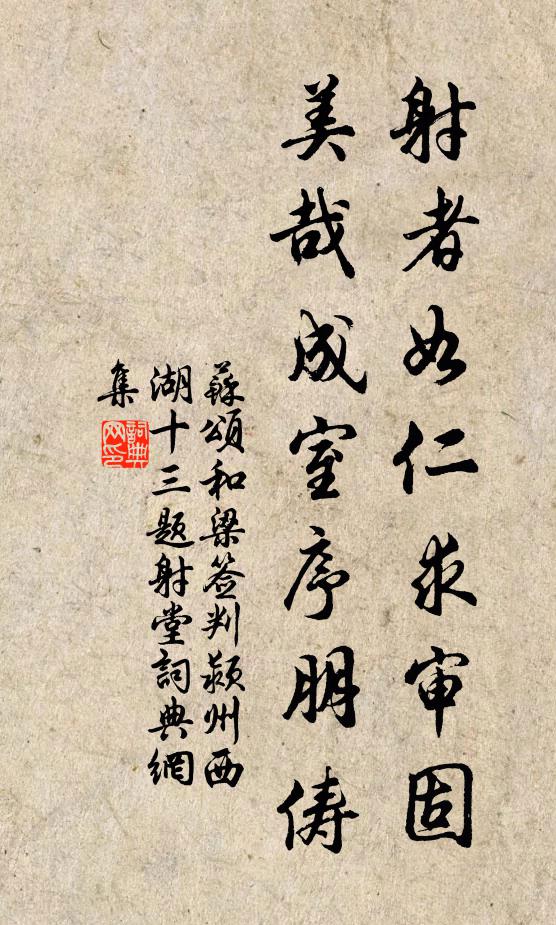 射者如仁求审固
美哉成室序朋俦
蘇頌和梁签判颍州西
湖十三题射堂詞典網
集
詞典网印